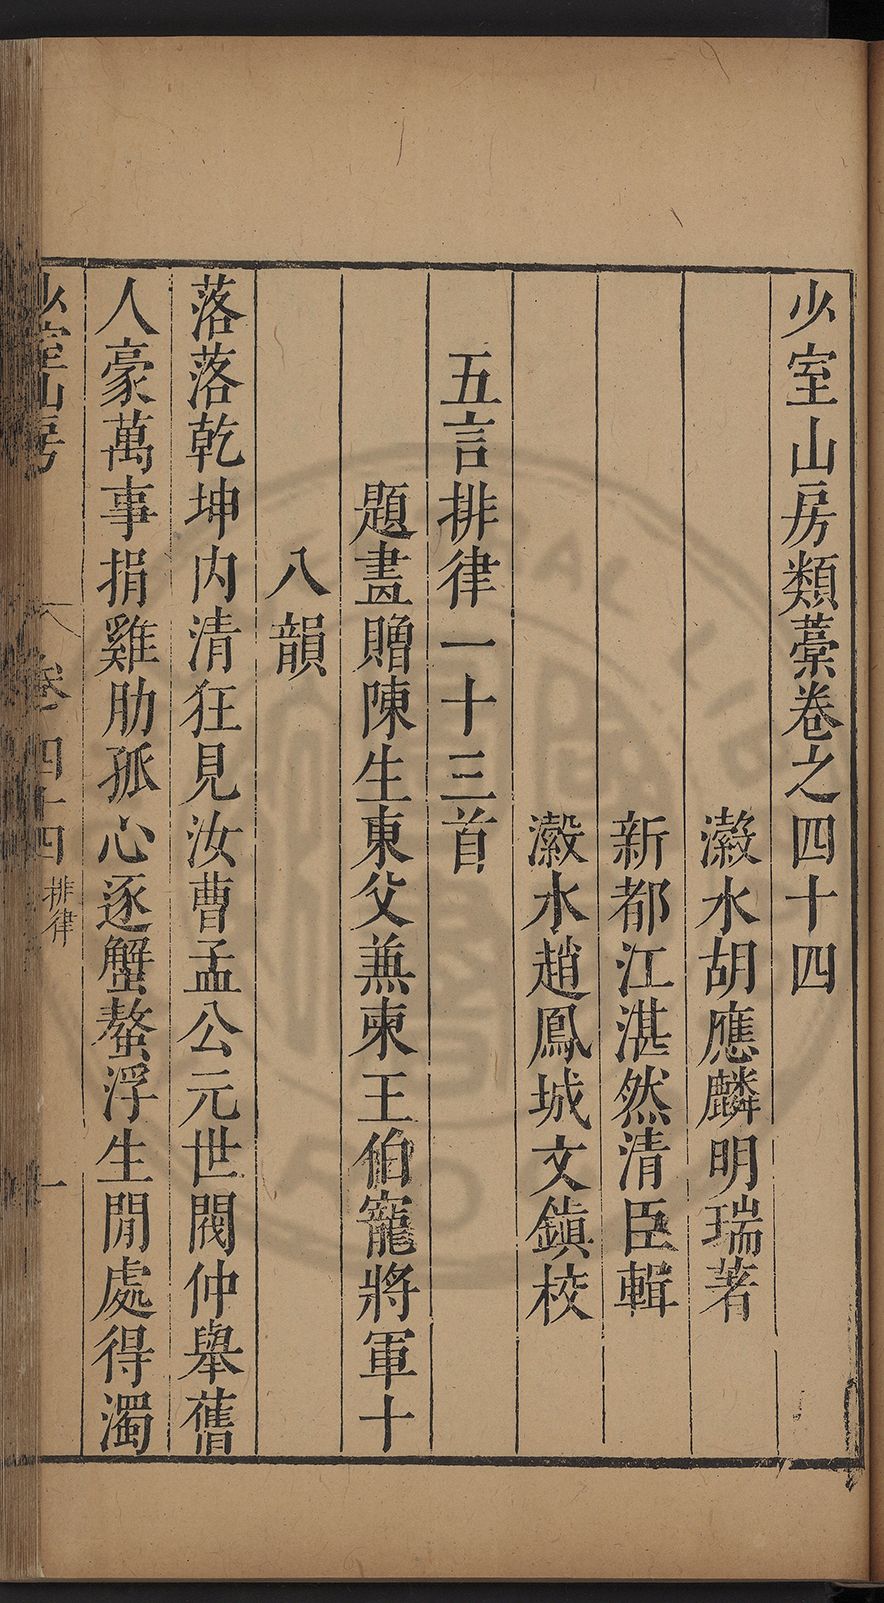 少室山房類藁卷之四十四
瀫水胡應麟明瑞著
新都江湛然清臣輯
瀫水趙鳳城文鎮校
五言排律一十三首
題畫贈陳生東父兼柬王伯寵將軍十
八韻
落落乾坤内清狂見汝曹孟公元世閥仲舉舊
人豪萬事捐雞肋孤心逐蟹螯浮生閒處得濁
少室山房
卷四十四
排律
一